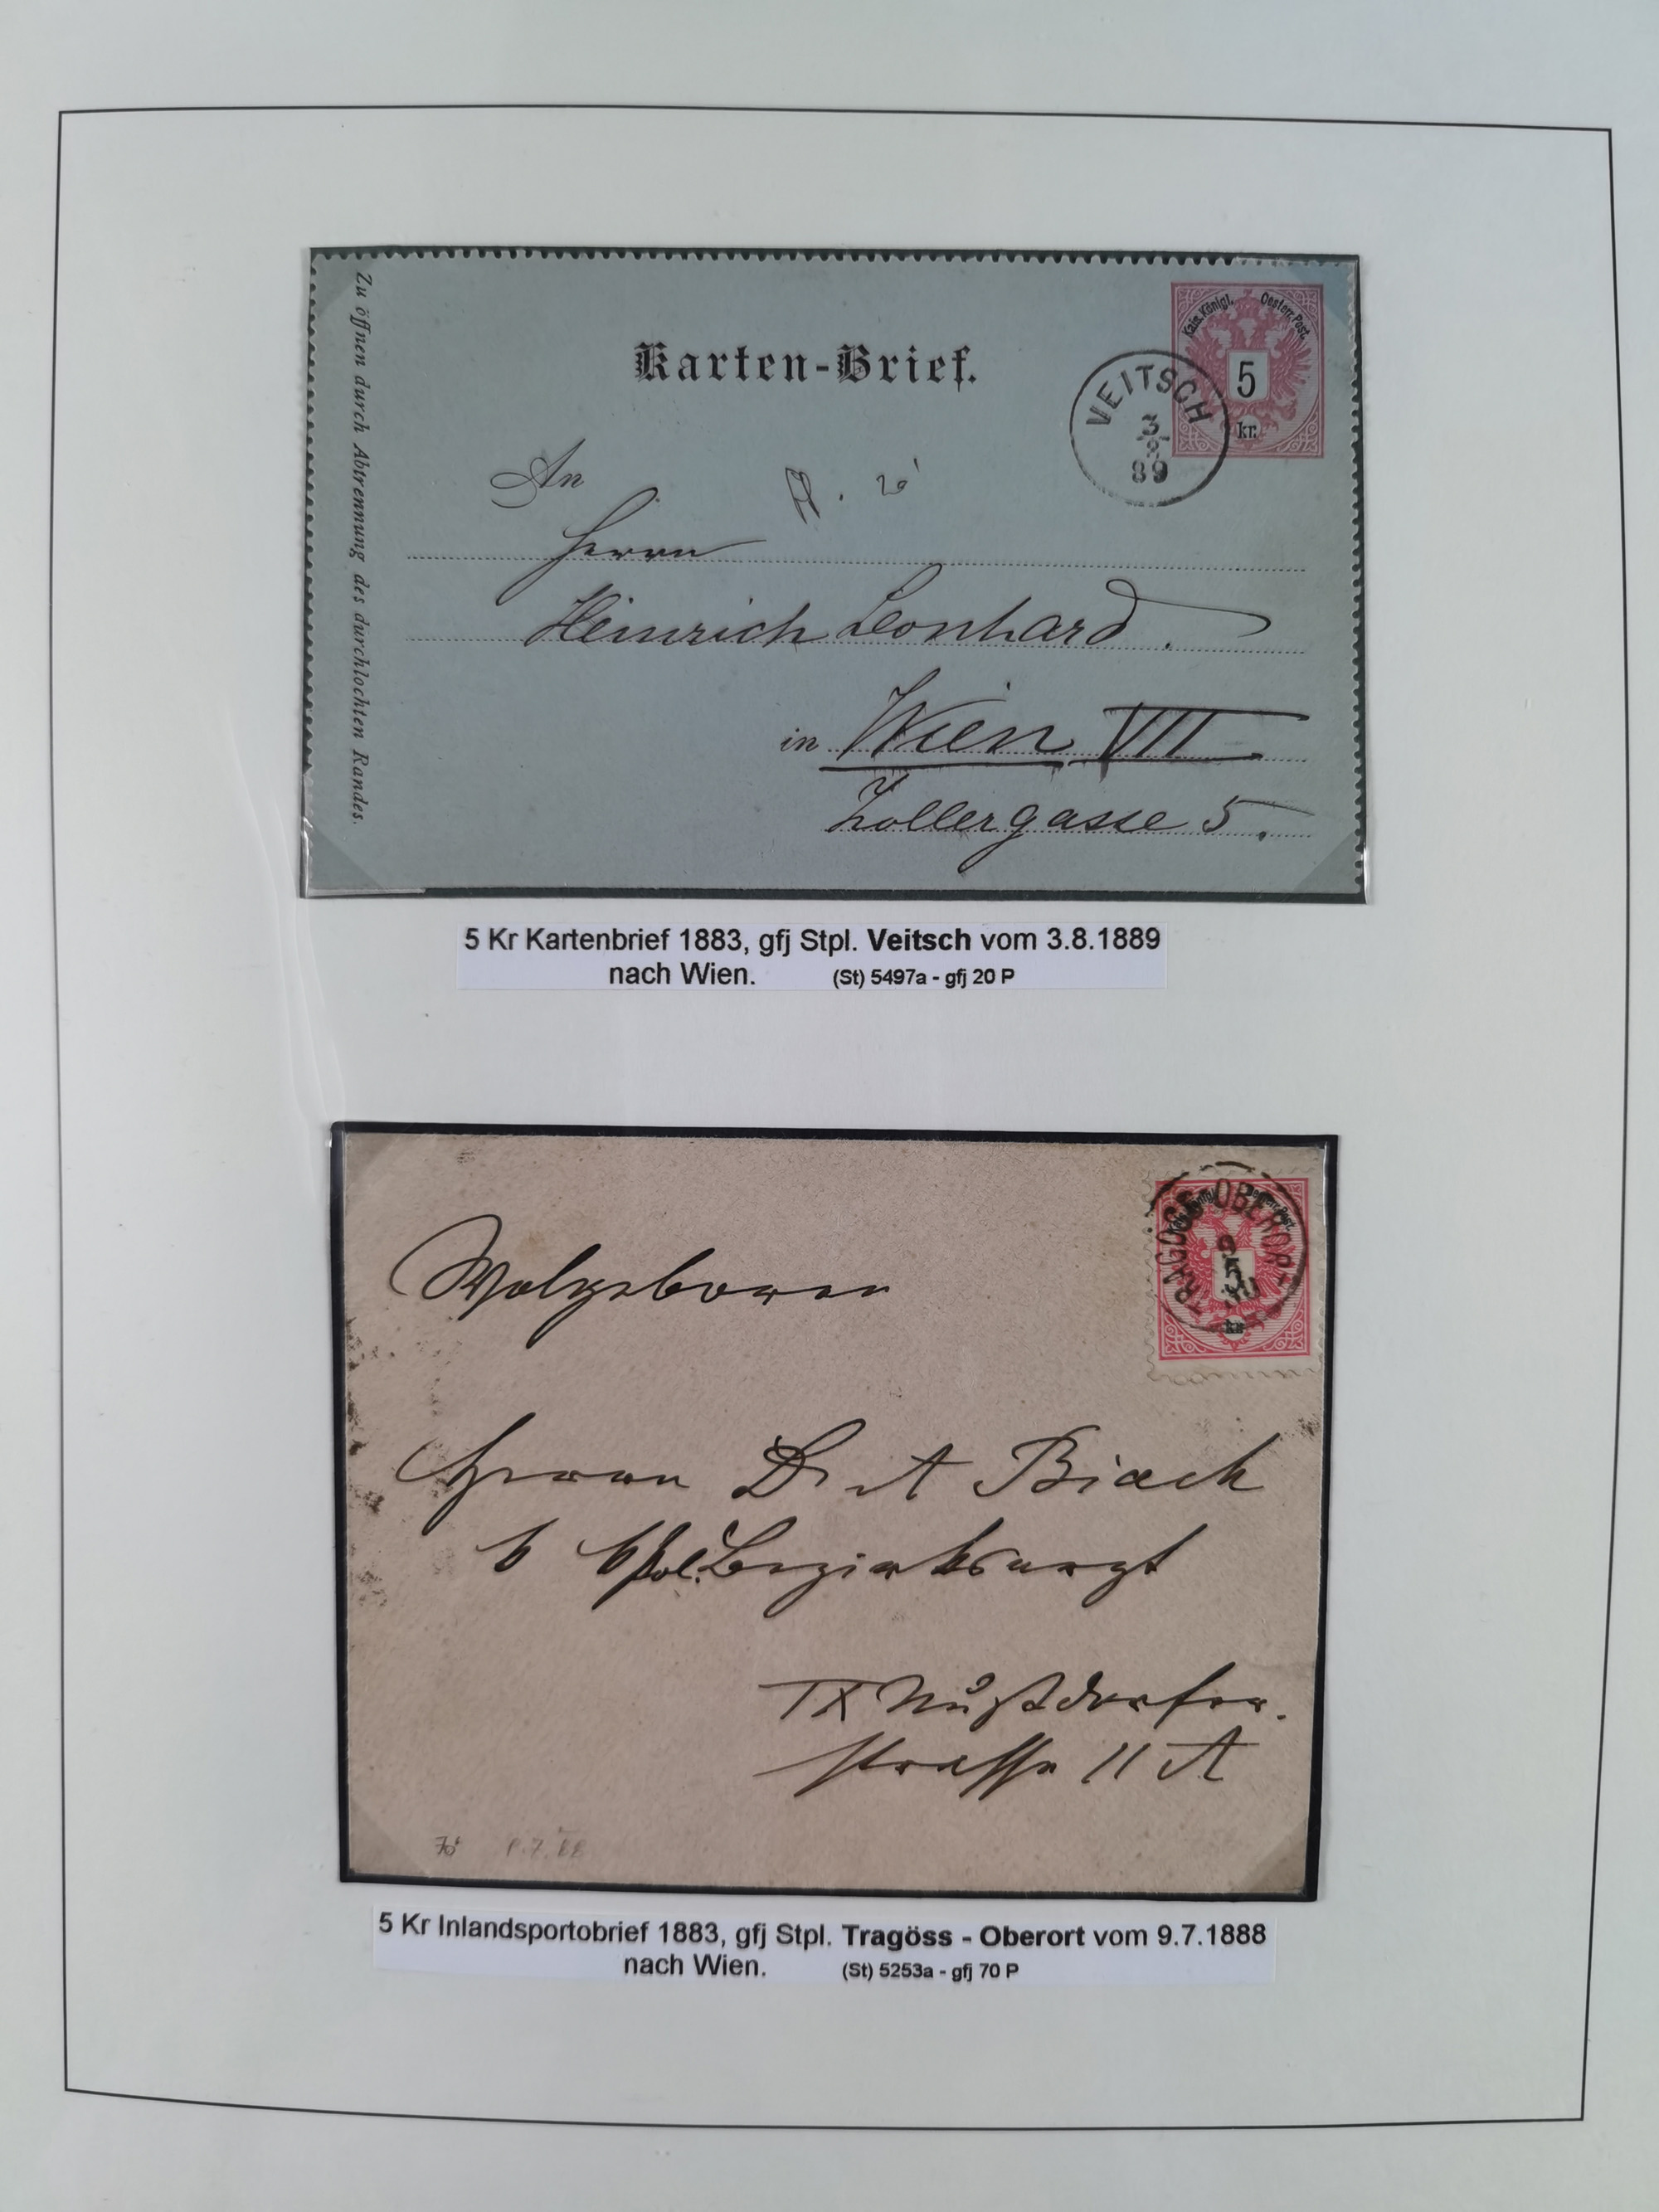 Kais. Königl. Oesterr. Post.
5
kr.
Karten-Brief.
VEITSCH
3
8
89
Zu öffnen durch Abtrennung des durchlochten Randes.
An
Herrn
Heinrich Leonhard.
in Wien VII
Zollergasse 5.
5 Kr Kartenbrief 1883, gfj Stpl. Veitsch vom 3.8.1889
nach Wien. (St) 5497a - gfj 20 P
TRAGÖSS-OBERORT
9
5
kr
Wolgeboren
Herrn Dr A Biach
k k Pol. Bezirksarzt
IX Nußdorfer.
strasse 11 A
70
5 Kr Inlandsportobrief 1883, gfj Stpl. Tragöss - Oberort vom 9.7.1888
nach Wien. (St) 5253a - gfj 70 P